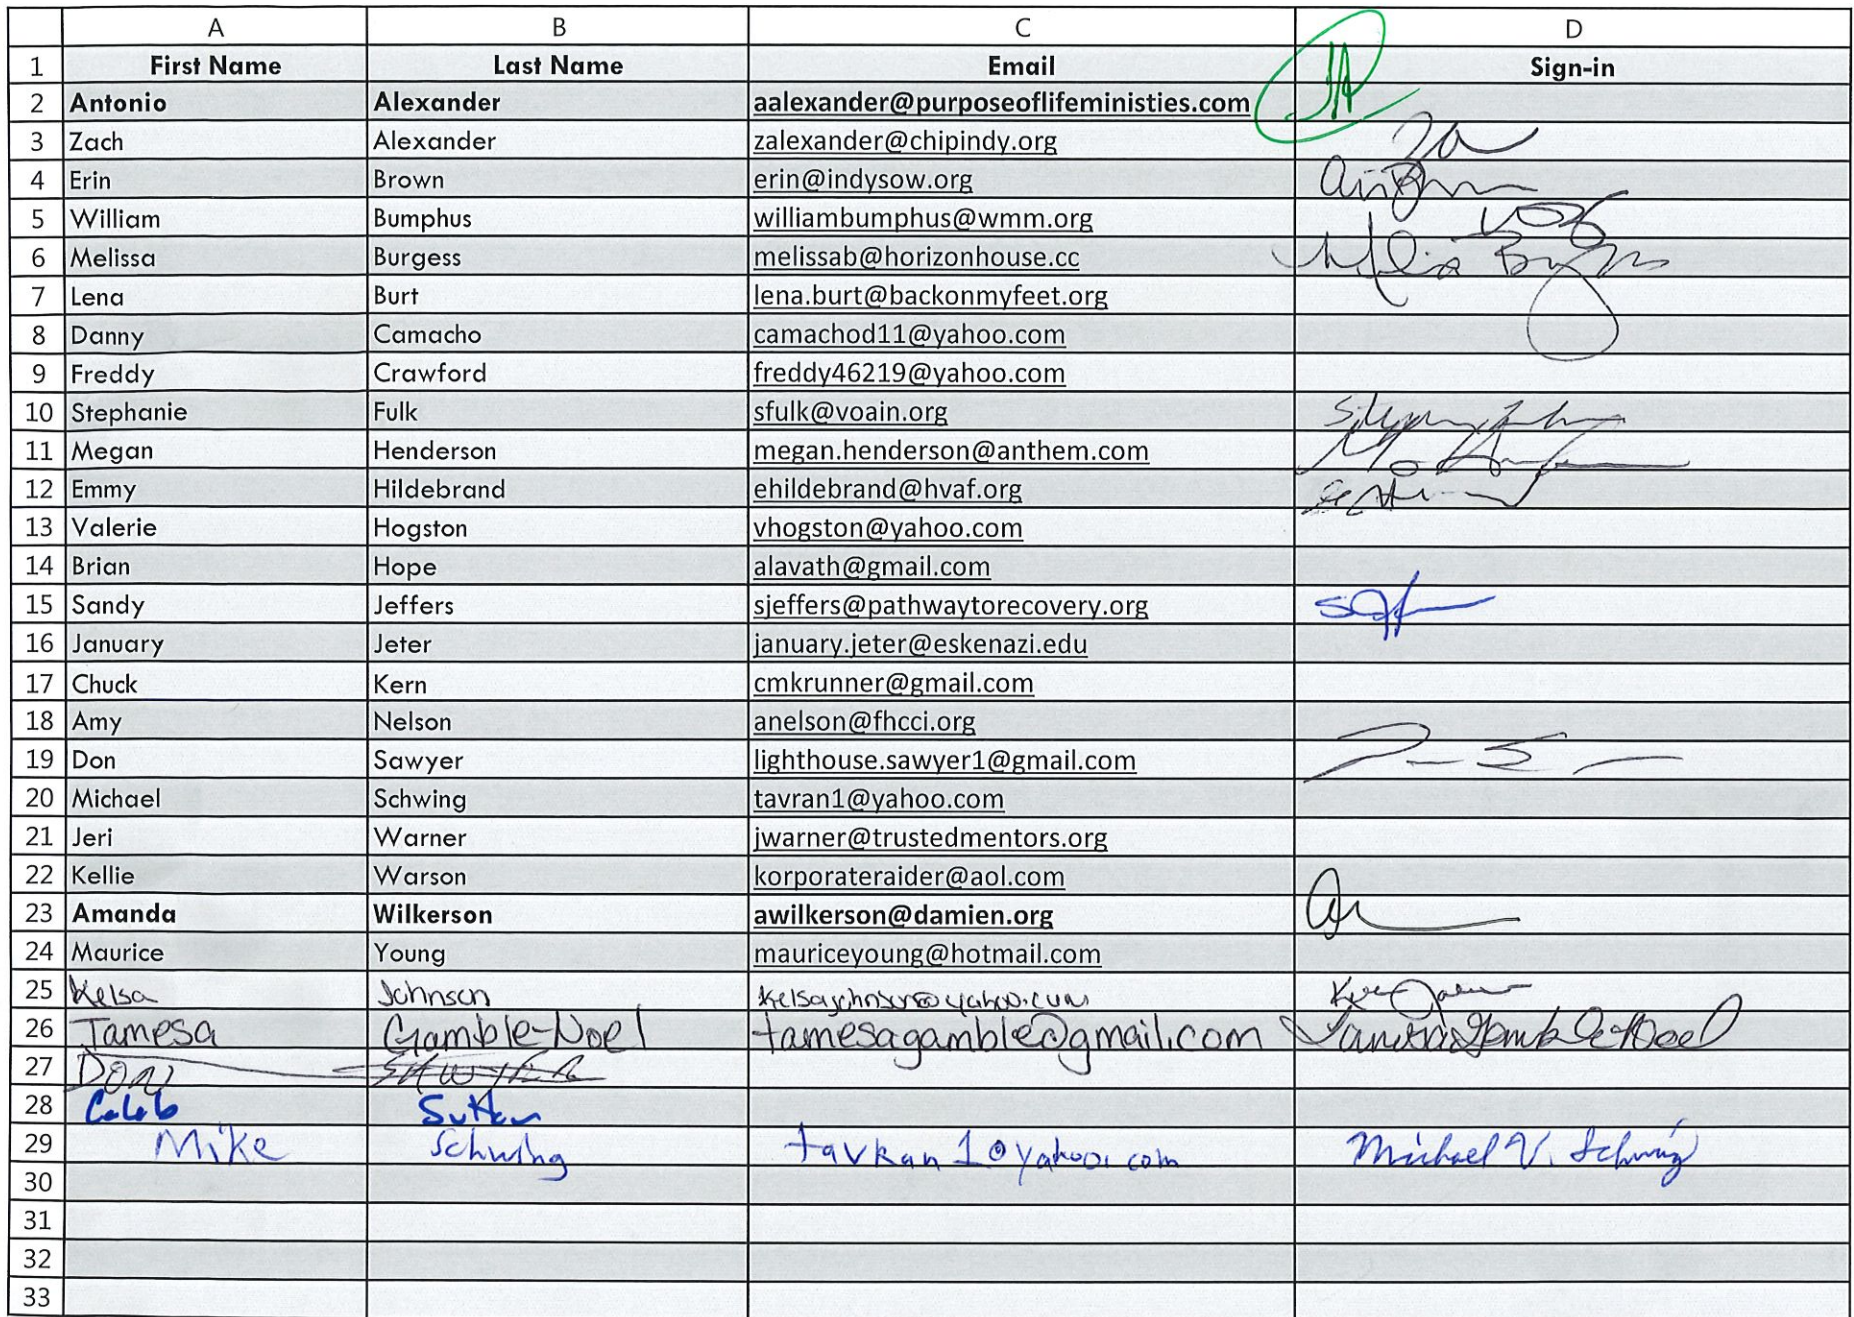 A B C D
1 First Name Last Name Email Sign-in
2 Antonio Alexander aalexander@purposeoflifeministies.com
3 Zach Alexander zalexander@chipindy.org
4 Erin Brown erin@indysow.org
5 William Bumphus williambumphus@wmm.org
6 Melissa Burgess melissab@horizonhouse.cc
7 Lena Burt lena.burt@backonmyfeet.org
8 Danny Camacho camachod11@yahoo.com
9 Freddy Crawford freddy46219@yahoo.com
10 Stephanie Fulk sfulk@voain.org
11 Megan Henderson megan.henderson@anthem.com
12 Emmy Hildebrand ehildebrand@hvaf.org
13 Valerie Hogston vhogston@yahoo.com
14 Brian Hope alavath@gmail.com
15 Sandy Jeffers sjeffers@pathwaytorecovery.org
16 January Jeter january.jeter@eskenazi.edu
17 Chuck Kern cmkrunner@gmail.com
18 Amy Nelson anelson@fhcci.org
19 Don Sawyer lighthouse.sawyer1@gmail.com
20 Michael Schwing tavran1@yahoo.com
21 Jeri Warner jwarner@trustedmentors.org
22 Kellie Warson korporateraider@aol.com
23 Amanda Wilkerson awilkerson@damien.org
24 Maurice Young mauriceyoung@hotmail.com
25 Kelsa Johnson
26 Tamesa Gamble-Noel tamesagamble@gmail.com
27 Don
28 Caleb Sutton
29 Mike Schwing tavran1@yahoo.com Michael V. Schwing
30
31
32
33